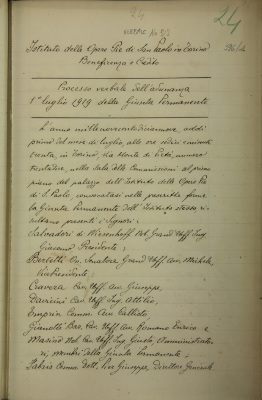 24
24
Istituto delle Opere Pie di San Paolo in Torino
Beneficenza e Credito
Processo verbale dell'adunanza
1° luglio 1919 della Giunta Permanente
L'anno millenovecentodiciannove, addì
primo del mese di luglio, alle ore sedici e minuti
trenta, in Torino, via Monte di Pietà, numero
trentadue, nella Sala delle Commissioni al primo
piano del palazzo dell'Istituto delle Opere Pie
di S. Paolo, convocatasi nelle prescritte forme
la Giunta Permanente dell'Istituto stesso ri-
sultano presenti i Signori:
Salvadori di Wiesenhoff Nob. Grand'Uff. Ing.
Giacomo Presidente;
Bertetti On. Senatore Grand'Uff. Avv. Michele,
Vicepresidente;
Cravera Cav. Uff. Avv. Giuseppe,
Davicini Cav. Uff. Ing. Attilio,
Emprin Comm. Avv. Callisto
Gianotti Bar. Cav. Uff. Avv. Romano Enrico e
Masino Not. Cav. Uff. Ing. Guido, Amministrato-
ri, membri della Giunta Permanente.
Fabris Comm. Dott. Pier Giuseppe, Direttore Generale